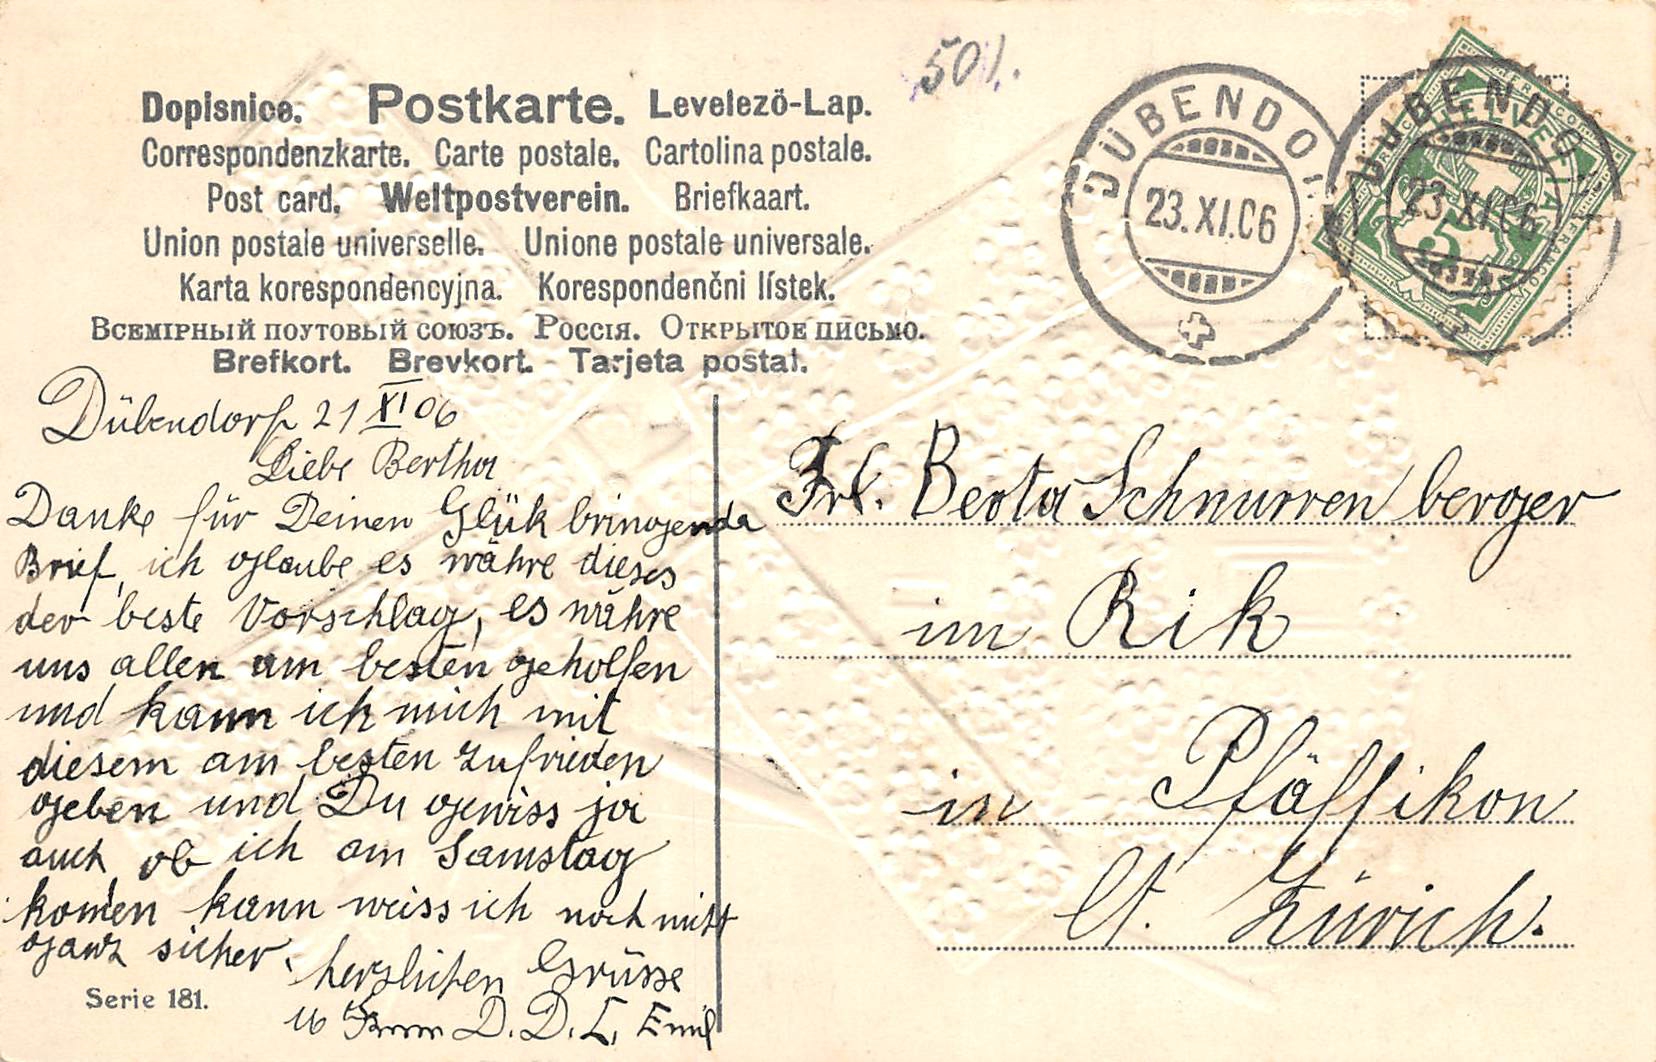 501.
Dopisnice. Postkarte. Levelező-Lap.
Correspondenzkarte. Carte postale. Cartolina postale.
Post card. Weltpostverein. Briefkaart.
Union postale universelle. Unione postale universale.
Karta korespondencyjna. Korespondenčni lístek.
Всемірный поутовый союзъ. Россія. Открытое письмо.
Brefkort. Brevkort. Tarjeta postal.
DÜBENDOR
23.XI.06
DÜBENDOR
23.XI.06
HELVETIA
FRANCO
5
Dübendorf 21 XI 06
Liebe Bertha
Danke für Deinen Glük bringenda
Brief, ich glaube es währe dieses
der beste Vorschlag, es währe
uns allen am besten geholfen
und kann ich mich mit
diesem am besten zufrieden
geben und Du gewiss ja
auch ob ich am Samstag
komen kann weiss ich noch nicht
ganz sicher.
herzlichen Grüsse
D. D. L. Emil
Serie 181.
Frl. Berta Schnurrenberger
im Rik
in Pfäffikon
Ct. Zürich.